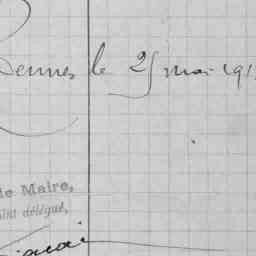 Rennes le 25 mai 191
de Maire,
oint délégué,